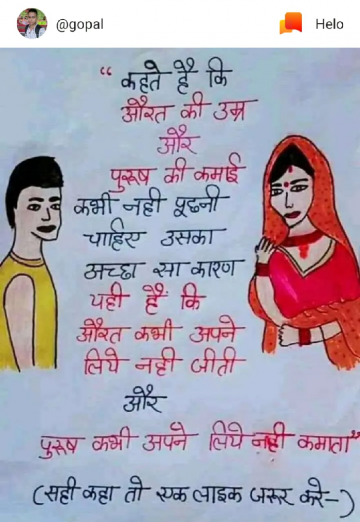 @gopal
Helo
“ कहते है कि
औरत की उम्र
और
पुरूष की कमाई
कभी नही पूछनी
चाहिए उसका
अच्छा सा कारण
यही है कि
औरत कभी अपने
लिये नही जीती
और
पुरूष कभी अपने लिये नही कमाता”
(सही कहा तो एक लाइक जरूर करे-)